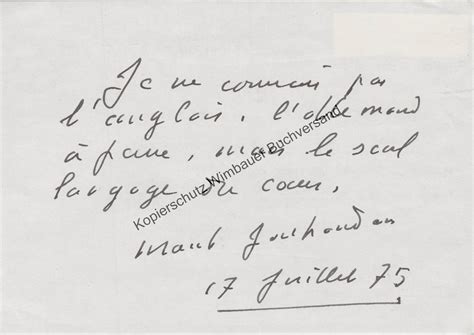 Je ne connais pas
l'anglais, l'allemand
à peine, mais le seul
langage du cœur.
Marcel Jouhandeau
17 Juillet 75
Kopierschutz Wimbauer Buchversand